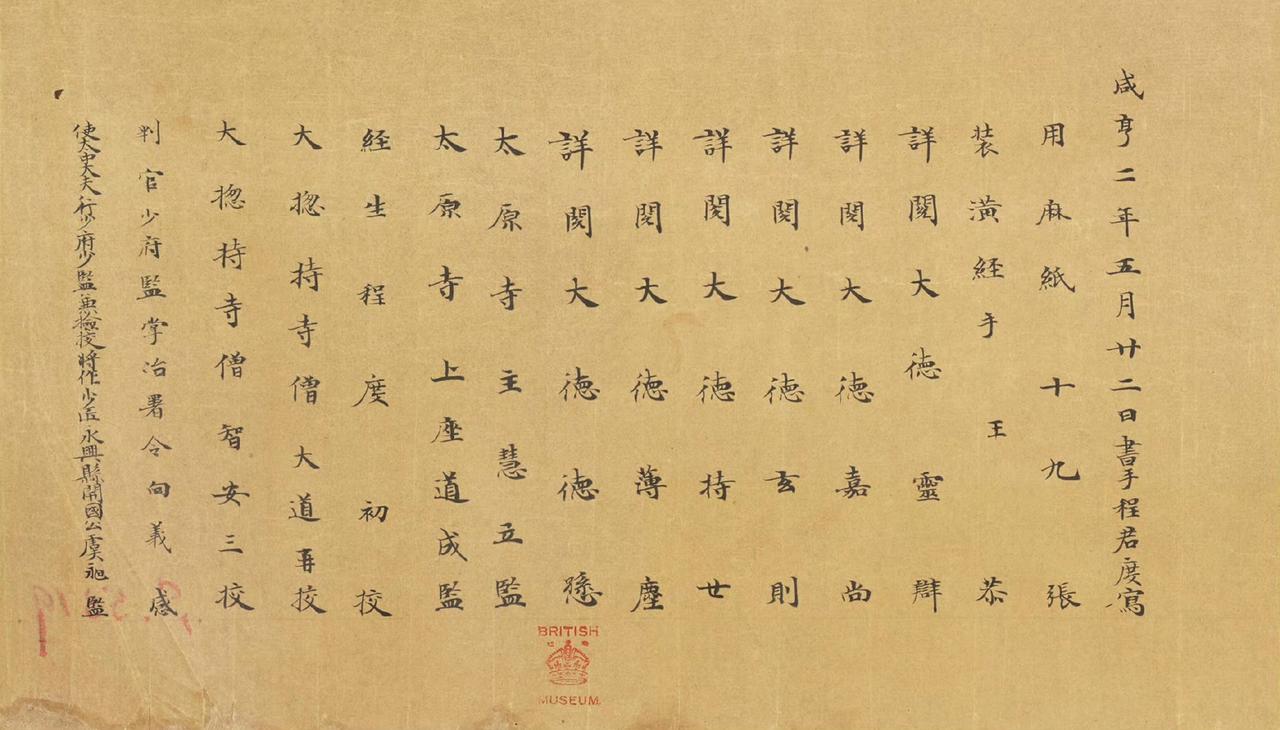 咸亨二年五月廿二日書手程君度寫
用麻紙十九張
装潢経手王恭
詳閱大德靈辯
詳閱大德嘉尚
詳閱大德玄則
詳閱大德持世
詳閱大德薄塵
詳閱大德德懸
太原寺主慧立監
太原寺上座道成監
経生程度初校
大揔持寺僧大道再校
大揔持寺僧智安三校
判官少府監掌冶署令向義感
使太中大夫行少府少監兼檢校將作少匠永興縣開國公虞昶監
BRITISH
MUSEUM